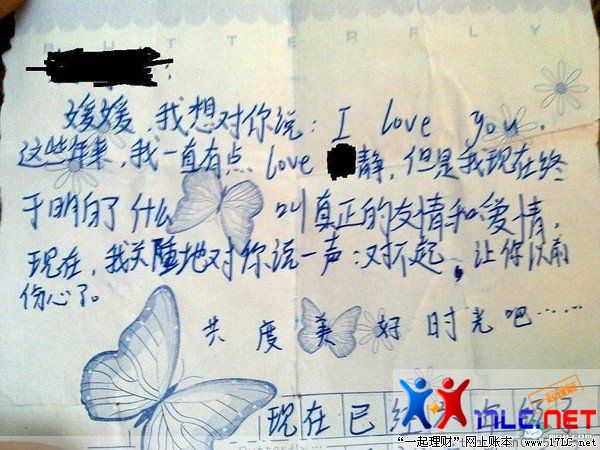 BUTTERFLY
媛媛，我想对你说：I love you.
这些年来，我一直有点 love 静，但是我现在终
于明白了什么 叫真正的友情和爱情，
现在，我关隆地对你说一声：对不起，让你以前
伤心了。
共度美好时光吧……
现在已经
17LC.NET
“一起理财”网上账本 www.17LC.net